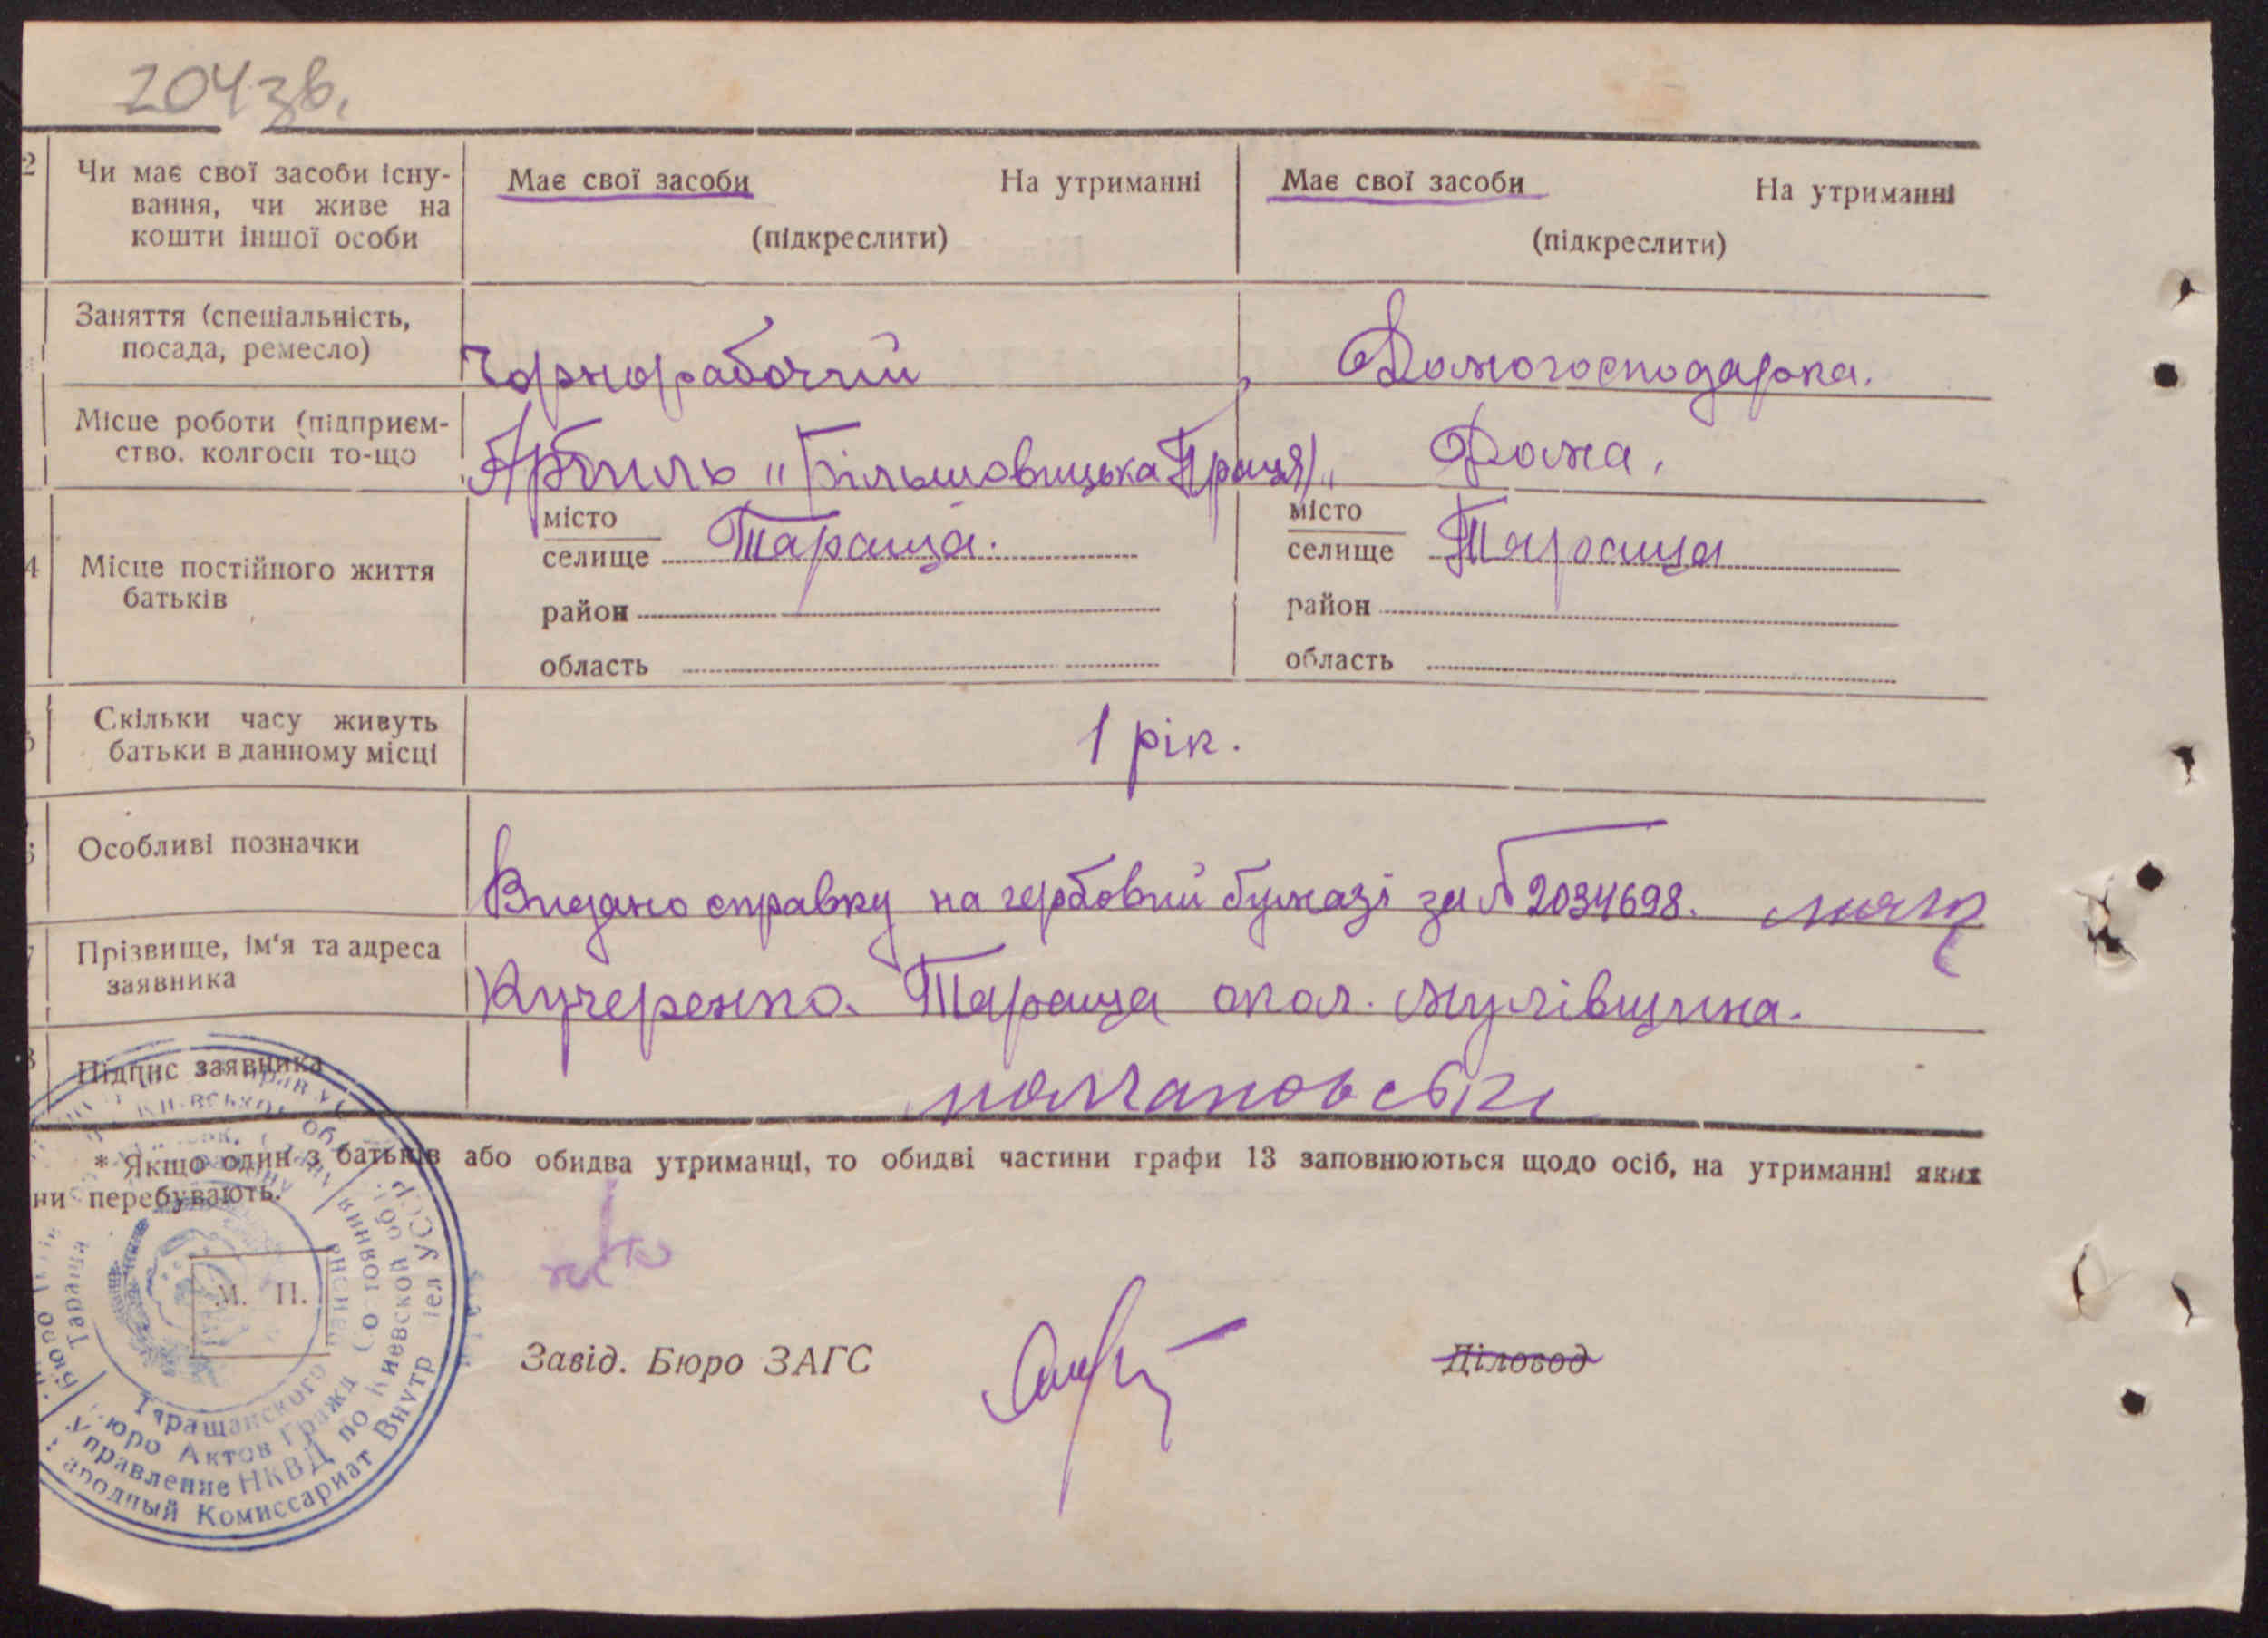 204зв.
2 Чи має свої засоби існу-
вання, чи живе на
кошти іншої особи
Має свої засоби На утриманні
(підкреслити)
Має свої засоби На утриманні
(підкреслити)
Заняття (спеціальність,
посада, ремесло)
Чорнорабочий
Домогосподарка.
Місце роботи (підприєм-
ство. колгосп то-що
Артиль "Більшовицька Праця"
Дома.
4 Місце постійного життя
батьків
місто
селище Тараща.
район
область
місто
селище Тараща
район
область
Скільки часу живуть
батьки в данному місці
1 рік.
Особливі позначки
Видано справку на гербовий бумазі за № 2034698.
Прізвище, ім'я та адреса
заявника
Кучеренко. Тараща окол.
Підпис заявника
* Якщо один з батьків або обидва утриманці, то обидві частини графи 13 заповнюються щодо осіб, на утриманні яких
ни перебувають.
М. П.
Завід. Бюро ЗАГС
Діловод
Таращанского
юро Актов Гражд
Управление НКВД по Киевской обл
ародный Комиссариат Внутр